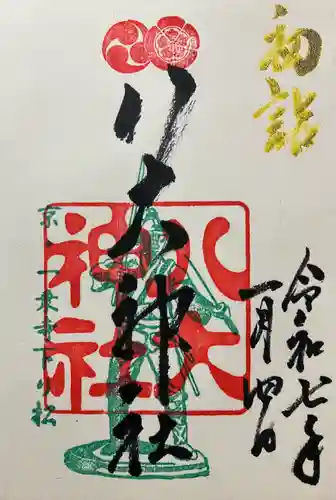 初詣
令和七年
一月四日
八大神社
八大
神社
京 一乗寺下り松